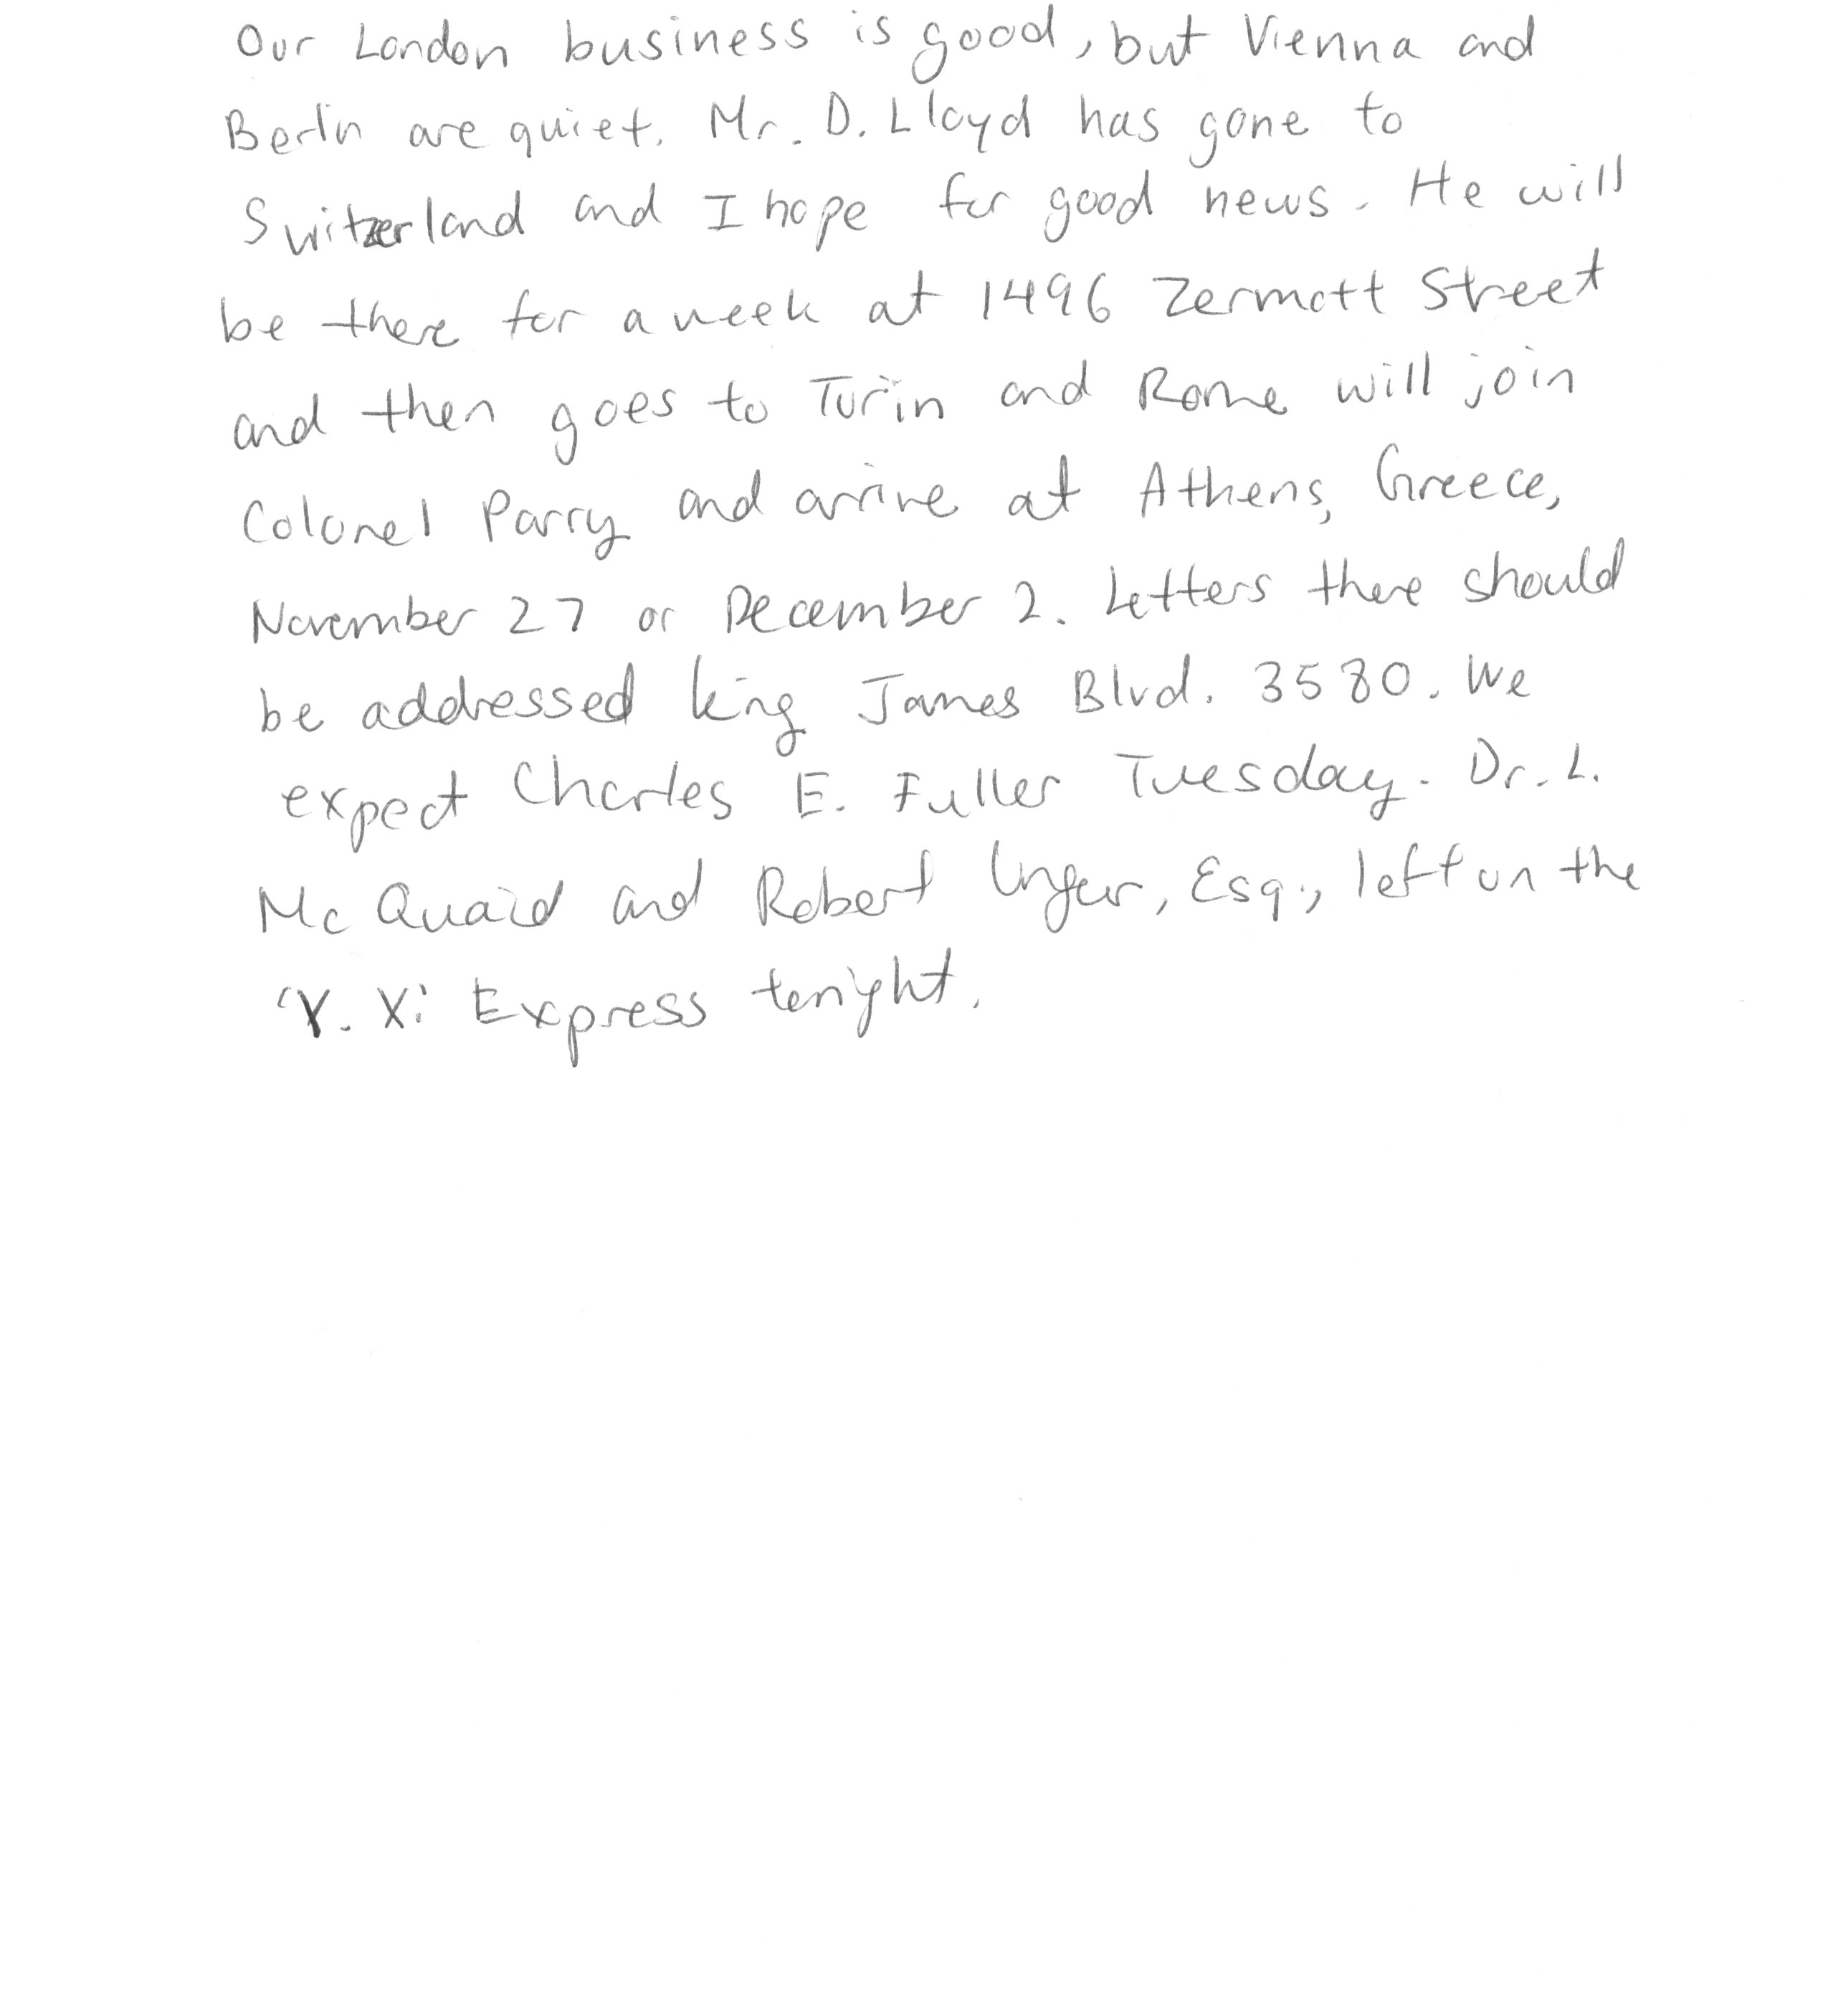 Our London business is good, but Vienna and
Berlin are quiet. Mr. D. Lloyd has gone to
Switzerland and I hope for good news. He will
be there for a week at 1496 Zermott Street
and then goes to Turin and Rome will join
Colonel Parry and arrive at Athens, Greece,
November 27 or December 2. Letters there should
be addressed King James Blvd. 3580. We
expect Charles E. Fuller Tuesday. Dr. L.
McQuaid and Robert Unger, Esq., left on the
'Y. X.' Express tonight.